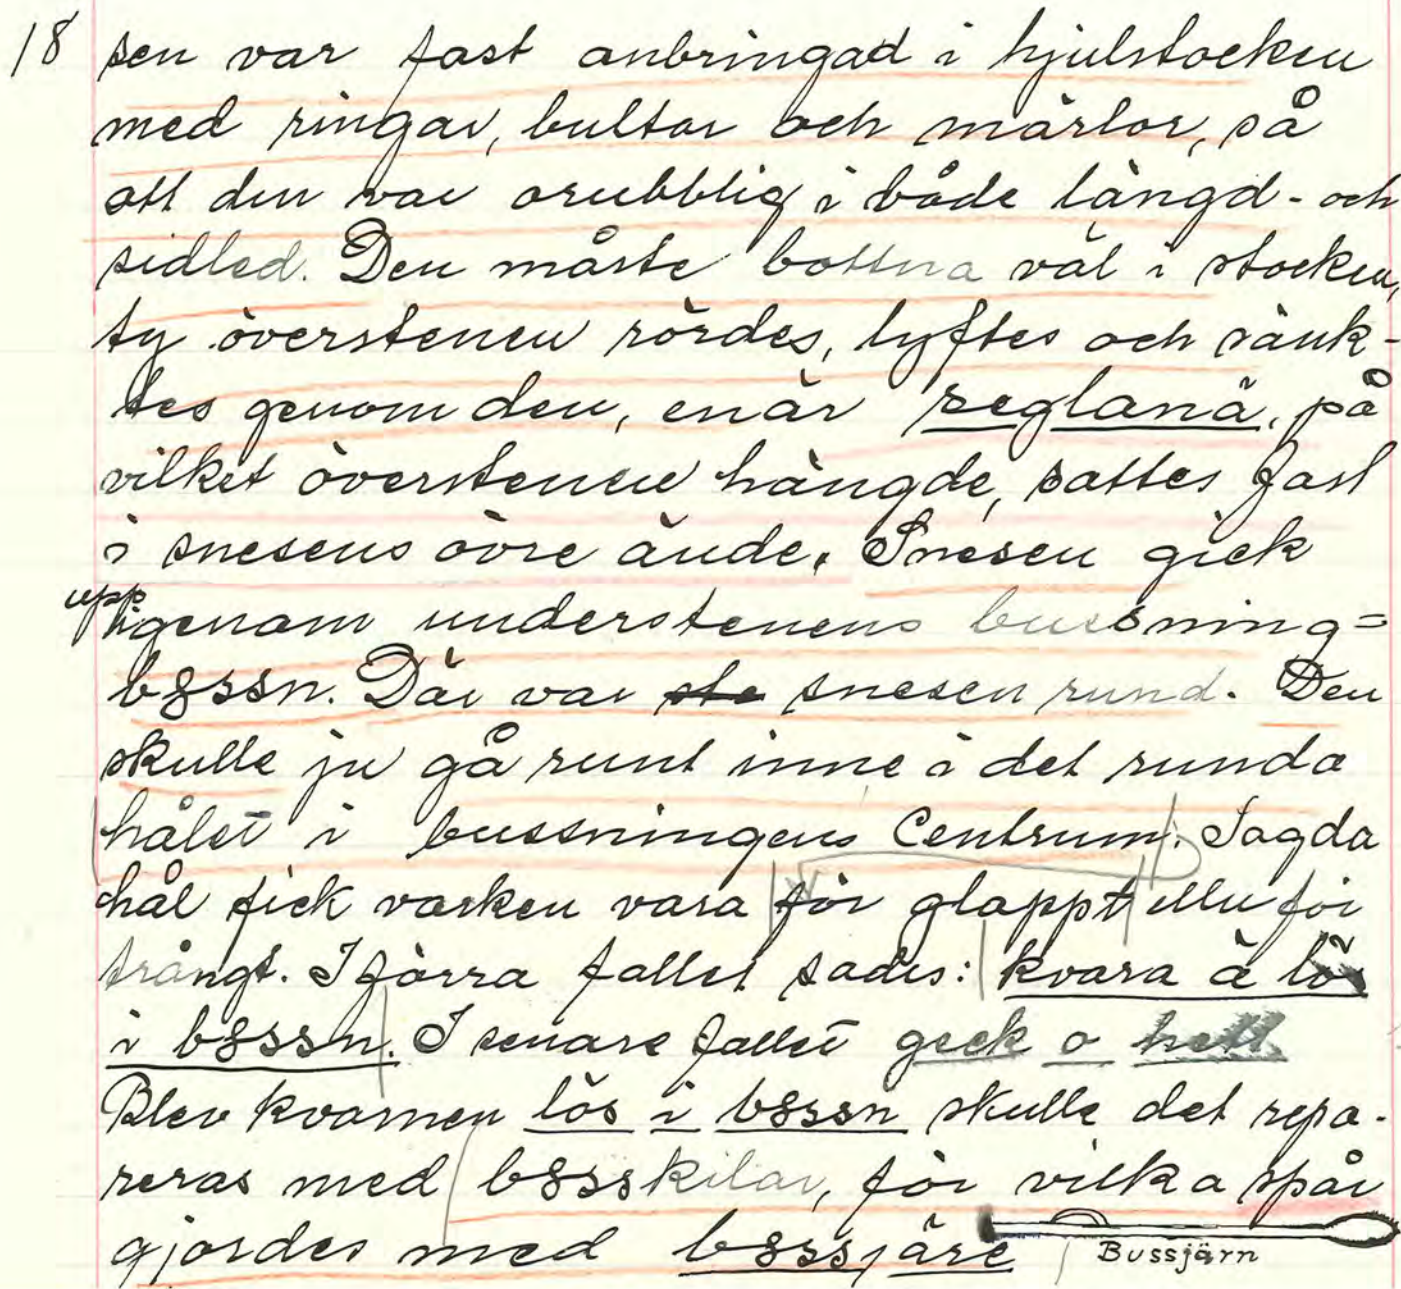 18 sen var fast anbringad i hjulstocken
med ringar, bultar och märlor, så
att den var orubblig i både längd- och
sidled. Den måste bottna väl i stocken,
ty överstenen rördes, lyftes och sänk-
tes genom den, enär seglanä, på
vilket överstenen hängde, sattes fast
i snesens övre ände. Snesen gick
upp igenom understenens bussning=
b8ssn. Där var ste snesen rund. Den
skulle ju gå runt inne i det runda
hålet i bussningens Centrum. Sagda
hål fick varken vara för glappt eller för
trångt. I förra fallet sades: kvara ä lös
i b8ssn. I senare fallet geck o hett
Blev kvarnen lös i b8ssn skulle det repa-
reras med b8sskilar, för vilka spår
gjordes med b8ssjäre
Bussjärn